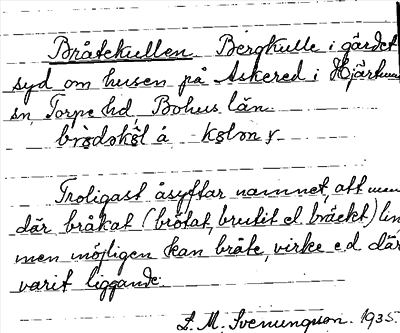 Bråtekullen Bergkulle i gärdet
syd om husen på Askered i Hjärtum
sn, Torpe hd, Bohus län.
Troligast åsyftar namnet, att man
där bråkat (brötat, brutit el. bräckt) lin
men möjligen kan bråte, virke e.d. där
varit liggande.
L. M. Svenungsson. 1935.